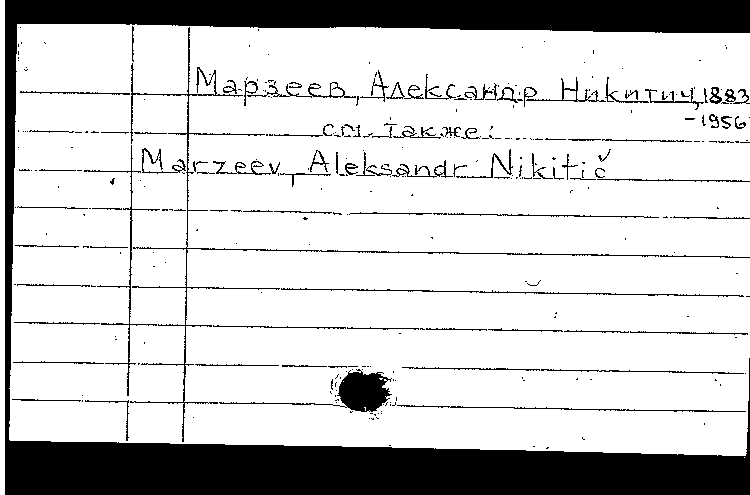 Марзеев, Александр Никитич, 1883
-1956
см. также:
Marzeev, Aleksandr Nikitič